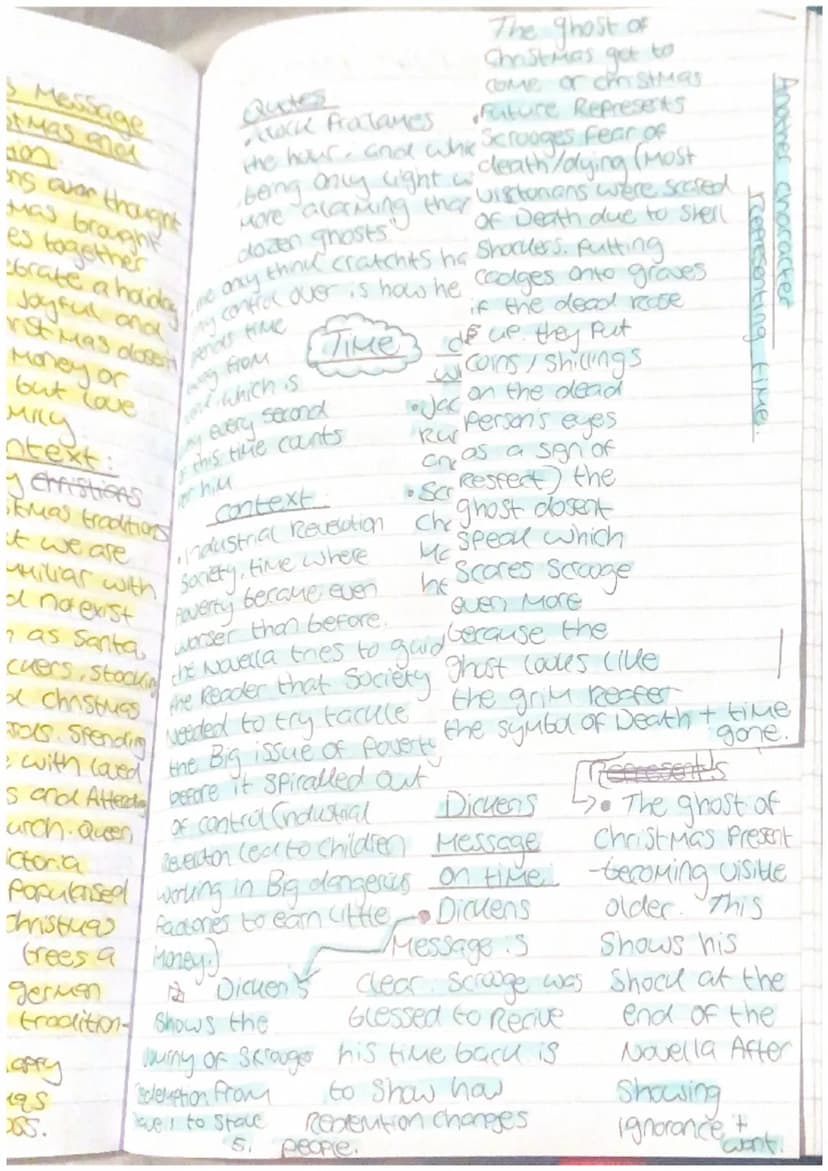 s Message
stmas and
ion.
ns over thought
mas brought
es together
ebrate a holiday
Joyful and
ristmas dosent
Money or
but love
mily.
ntext:
y christions
stmas traditions
t we are
miliar with
d not exist
as Santa,
stockin
d christmas
spending
e with loved
s and Attending
urch. Queen
ictoria
Populised
christmas
trees a
german
tradition-
appy
Quotes
the hour, and whic
being only light w
More "alarming than
dozen ghosts"
only think cratchits ha
control over is how he
time
from
which is
every second
this time counts
him
Time
context:
• Industrial Revelution
Society, time where
Poverty became even
worser than before.
the Novella tries to guid
the Reader that Society
Needed to try tackle
the Big issue of Poverty
before it spiralled out
of control (industrial
Revelution led to children
working in Big dangerius
factories to earn little
Money.)
Dicken's
Shows the
Journy of Scrooges
redemption from
Stave
5.
• Jac
Rur
• Scr
Chr
he
The ghost of
Christmas get to
come or christmas
• Future Represents
Scrooges fear of
death/dying (Most
Victorians were scared
of Death due to
Putting
cadges onto graves
if the dead rose
up. they put
coins / shillings
on the dead
Person's eyes
as a sgn of
respect) the
ghost dosent
speak which
Scares Scrooge
even more
because the
ghust looks like
the grim Reaper
the symbol of Death + time
gone.
Another character
representing time.
Dickens
Message
on time.
• Dickens
Message is
clear. Scrooge was
blessed to Recive
his time back is
to Show how
Redemtion changes
people.
Represents
• The ghost of
Christmas Present
-becoming visible
older. This
Shows his
Shock at the
end of the
Novella After
Showing
ignorance +
want.